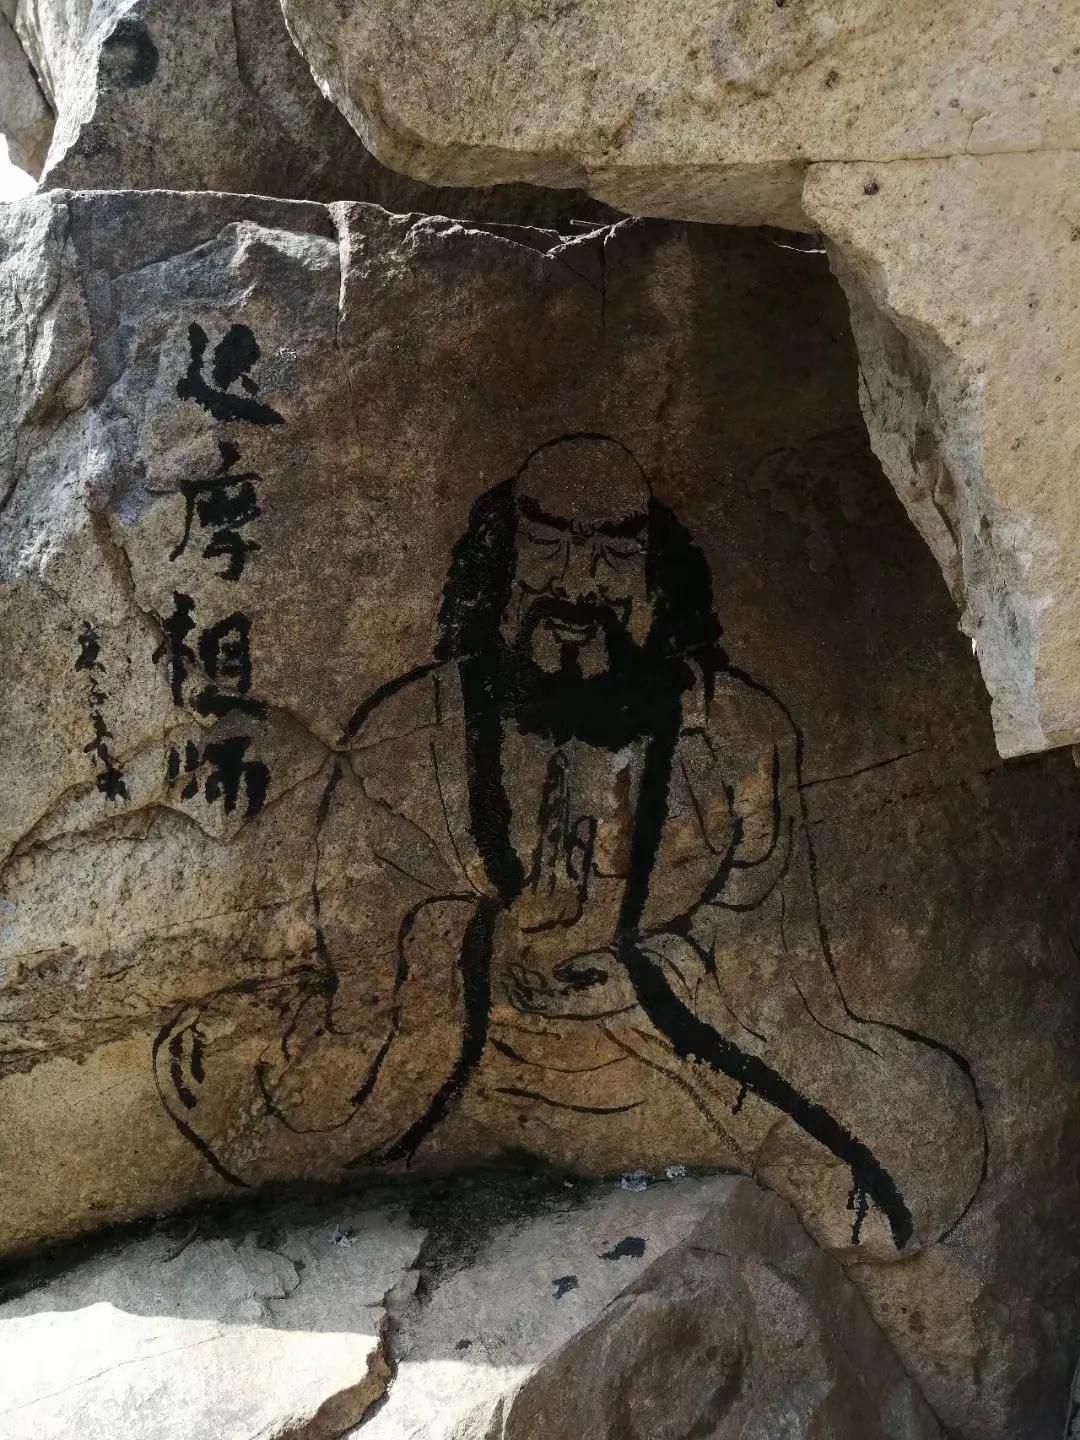 达摩祖师